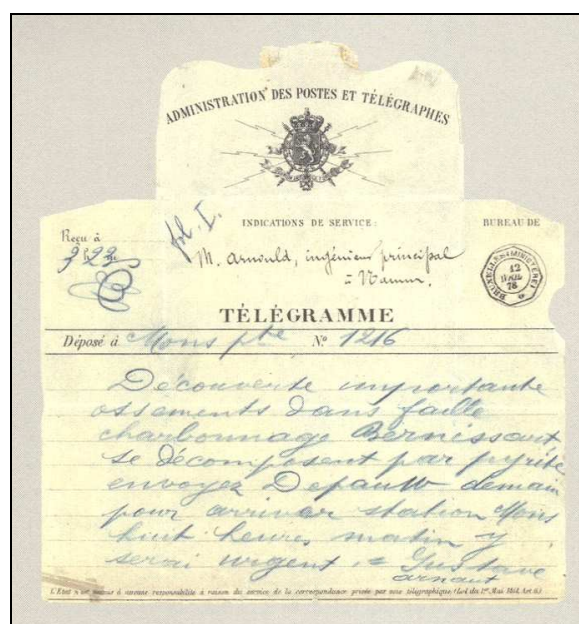 ADMINISTRATION DES POSTES ET TÉLÉGRAPHES
INDICATIONS DE SERVICE:
BUREAU DE
Reçu à
3h22
fol. I.
M. Arnould, ingénieur principal
= Namur.
12
78
TÉLÉGRAMME
Déposé à Mons pte No 1216
Découverte importante
ossements dans faille
charbonnage Bernissart
se décomposent par pyrite
envoyez Depauw demain
pour arriver station Mons
huit heures matin y
serai urgent = Gustave
arnaut
L'État n'est soumis à aucune responsabilité à raison du service de la correspondance privée par voie télégraphique (Loi du 1er Mai